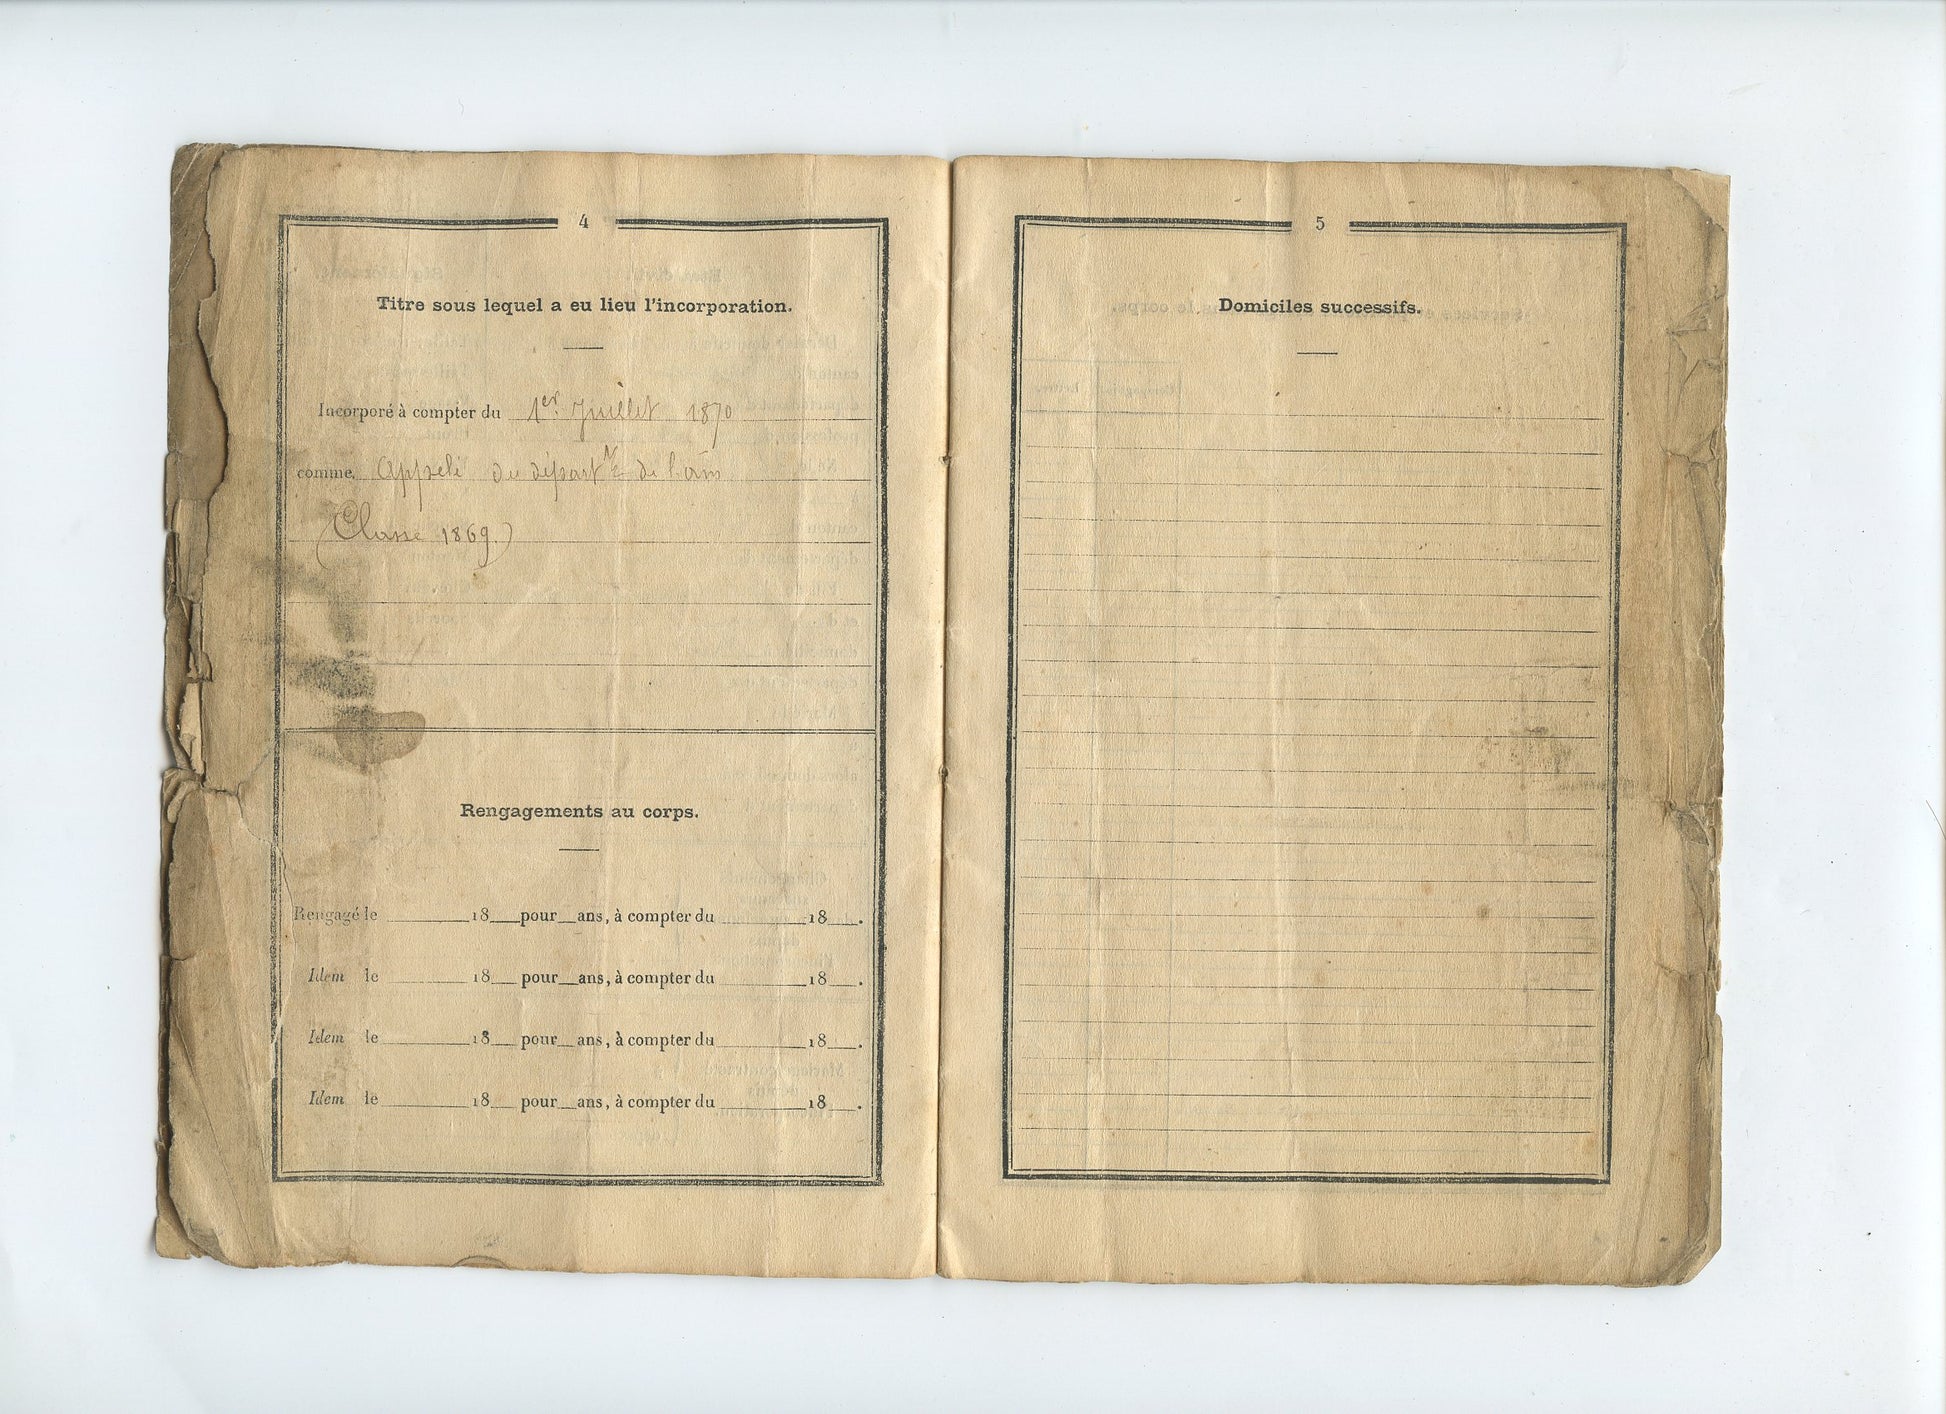 4
Titre sous lequel a eu lieu l'incorporation.
Incorporé à compter du 1er Juillet 1870
comme Appelé du départt de l'ain
(Classe 1869.)
Rengagements au corps.
Rengagé le 18 pour ans, à compter du 18 .
Idem le 18 pour ans, à compter du 18 .
Idem le 18 pour ans, à compter du 18 .
Idem le 18 pour ans, à compter du 18 .
5
Domiciles successifs.